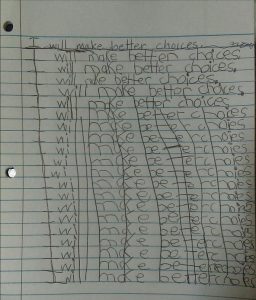 I will make better choices.
I will make better choices.
I will make better choices.
I will make better choices.
I will make better choices.
I will make better choices.
I will make better choices
I will make better choices
I will make better choies
I will make better choies
I will make better choies
I will make better choies
I will make better choies
I will make better choies
I will make better choies
I will make better choies
I will make better choies
I will make better choies
I will make better choies
I will make better choies
I will make better choies